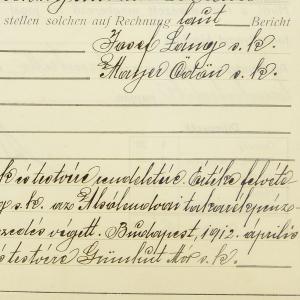 stellen solchen auf Rechnung laut Bericht
Josef Láng s. k.
Mayer Ödön s. k.
k és testvére rendeletére. Értéke felvéte
g s. k. az Alsólendvai takarékpénz-
zedés végett. Budapest, 1912. április
és testvére Grünhut Mór s. k.